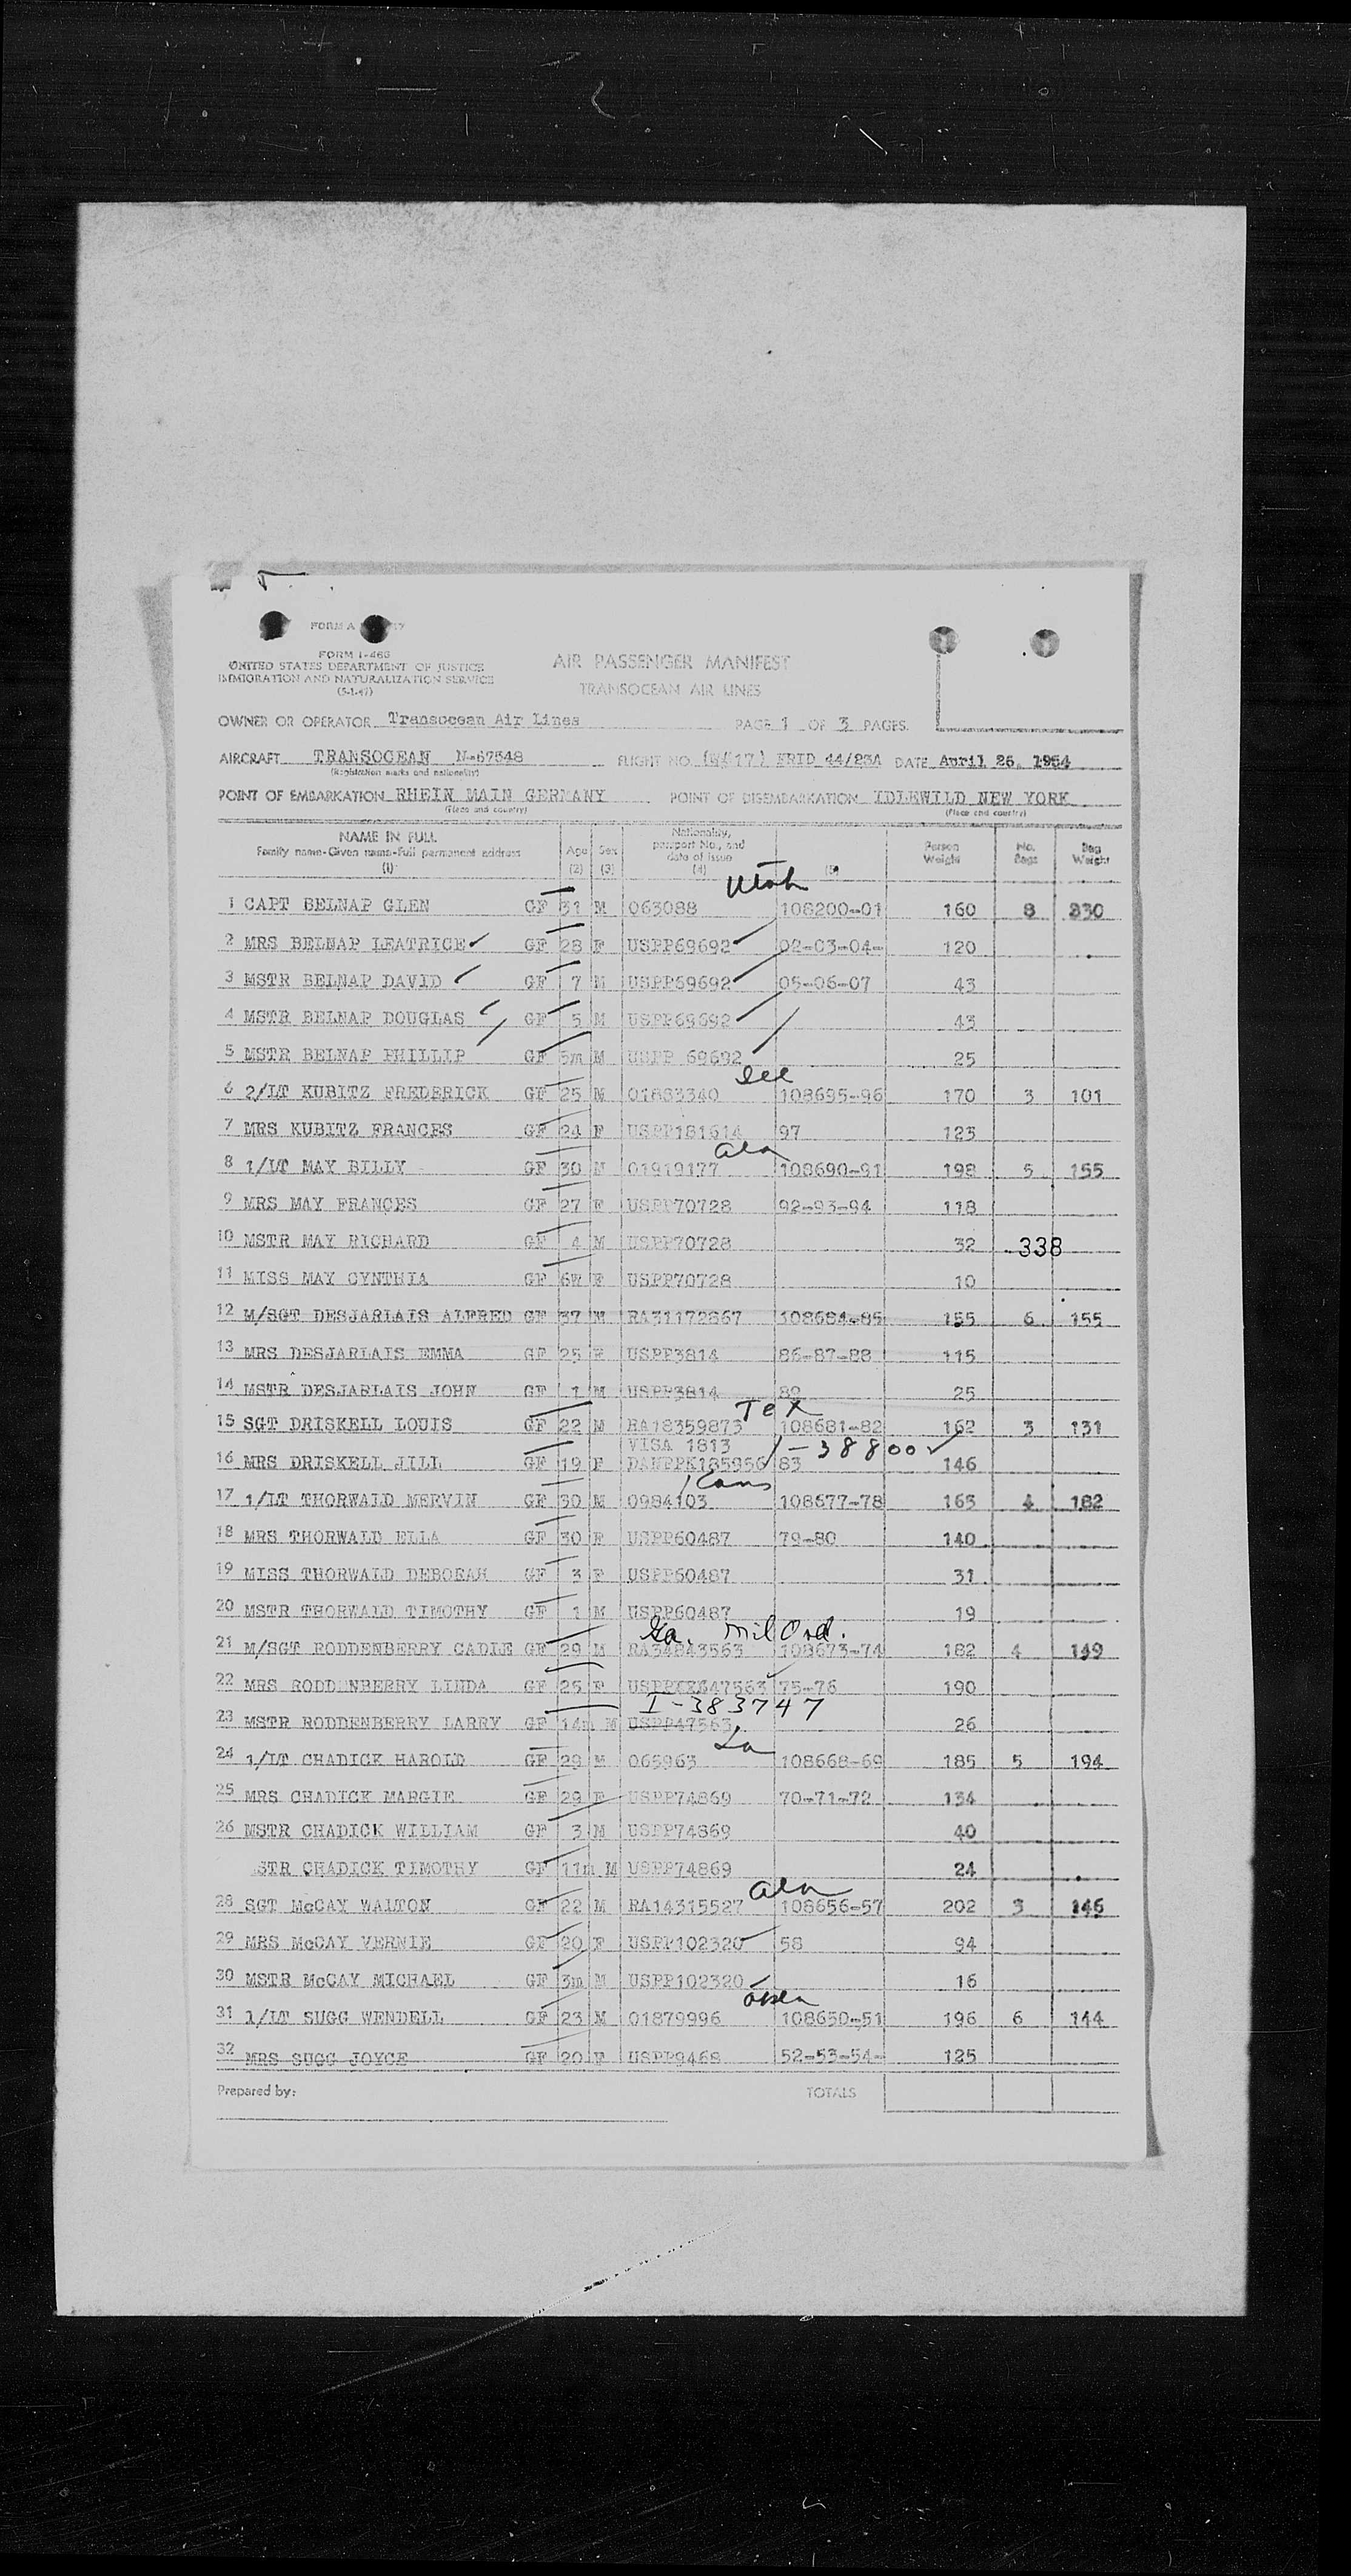 FORM A
FORM I-466
UNITED STATES DEPARTMENT OF JUSTICE
IMMIGRATION AND NATURALIZATION SERVICE
(5-1-47)
AIR PASSENGER MANIFEST
TRANSOCEAN AIR LINES
OWNER OR OPERATOR Transocean Air Lines PAGE 1 OF 3 PAGES.
AIRCRAFT TRANSOCEAN N-67548 FLIGHT NO. FRID 44/23A DATE April 26, 1954
(Registration marks and nationality)
POINT OF EMBARKATION RHEIN MAIN GERMANY POINT OF DISEMBARKATION IDLEWILD NEW YORK
(Place and country) (Place and country)
NAME IN FULL Family name-Given name-Full permanent address (1) Age (2) Sex (3) Nationality, passport No., and date of issue (4) (5) Person Weight No. Bags Bag Weight
Utah
1 CAPT BELNAP GLEN GF 31 M 063088 108200-01 160 8 330
2 MRS BELNAP LEATRICE GF 28 F USPP69692 02-03-04- 120
3 MSTR BELNAP DAVID GF 7 M USPP69692 05-06-07 43
4 MSTR BELNAP DOUGLAS GF 5 M USPP69692 43
5 MSTR BELNAP PHILLIP GF 5m M USPP 69692 25
6 2/LT KUBITZ FREDERICK GF 25 M 01883340 108695-96 170 3 101
7 MRS KUBITZ FRANCES GF 24 F USPP181614 97 123
Ala
8 1/LT MAY BILLY GF 30 M 01919177 108690-91 198 5 155
9 MRS MAY FRANCES GF 27 F USPP70728 92-93-94 118
10 MSTR MAY RICHARD GF 4 M USPP70728 32 338
11 MISS MAY CYNTHIA GF 6W F USPP70728 10
12 M/SGT DESJARLAIS ALFRED GF 37 M RA31172867 108684-85 155 6 155
13 MRS DESJARLAIS EMMA GF 25 F USPP3814 86-87-88 115
14 MSTR DESJARLAIS JOHN GF 1 M USPP3814 89 25
Tex
15 SGT DRISKELL LOUIS GF 22 M RA18359873 108681-82 162 3 131
VISA 1813 1-38800
16 MRS DRISKELL JILL GF 19 F DANPPK185956 83 146
Kans
17 1/LT THORWALD MERVIN GF 30 M 0984103 108677-78 163 4 182
18 MRS THORWALD ELLA GF 30 F USPP60487 79-80 140
19 MISS THORWALD DEBORAH GF 3 F USPP60487 31
20 MSTR THORWALD TIMOTHY GF 1 M USPP60487 19
Ga. Mil Ord.
21 M/SGT RODDENBERRY CADLE GF 29 M RA34843563 108673-74 182 4 149
22 MRS RODDENBERRY LINDA GF 25 F 75-76 190
I-383747
23 MSTR RODDENBERRY LARRY GF 14m M USPP47563 26
La
24 1/LT CHADICK HAROLD GF 29 M 065963 108668-69 185 5 194
25 MRS CHADICK MARGIE GF 29 F USPP74869 70-71-72 134
26 MSTR CHADICK WILLIAM GF 3 M USPP74869 40
STR CHADICK TIMOTHY GF 11m M USPP74869 24
Ala
28 SGT McCAY WALTON GF 22 M RA14315527 108656-57 202 3 146
29 MRS McCAY VERNIE GF 20 F USPP102320 58 94
30 MSTR McCAY MICHAEL GF 3m M USPP102320 16
31 1/LT SUGG WENDELL GF 23 M 01879996 108650-51 196 6 144
32 MRS SUGG JOYCE GF 20 F USPP9468 52-53-54- 125
Prepared by: TOTALS